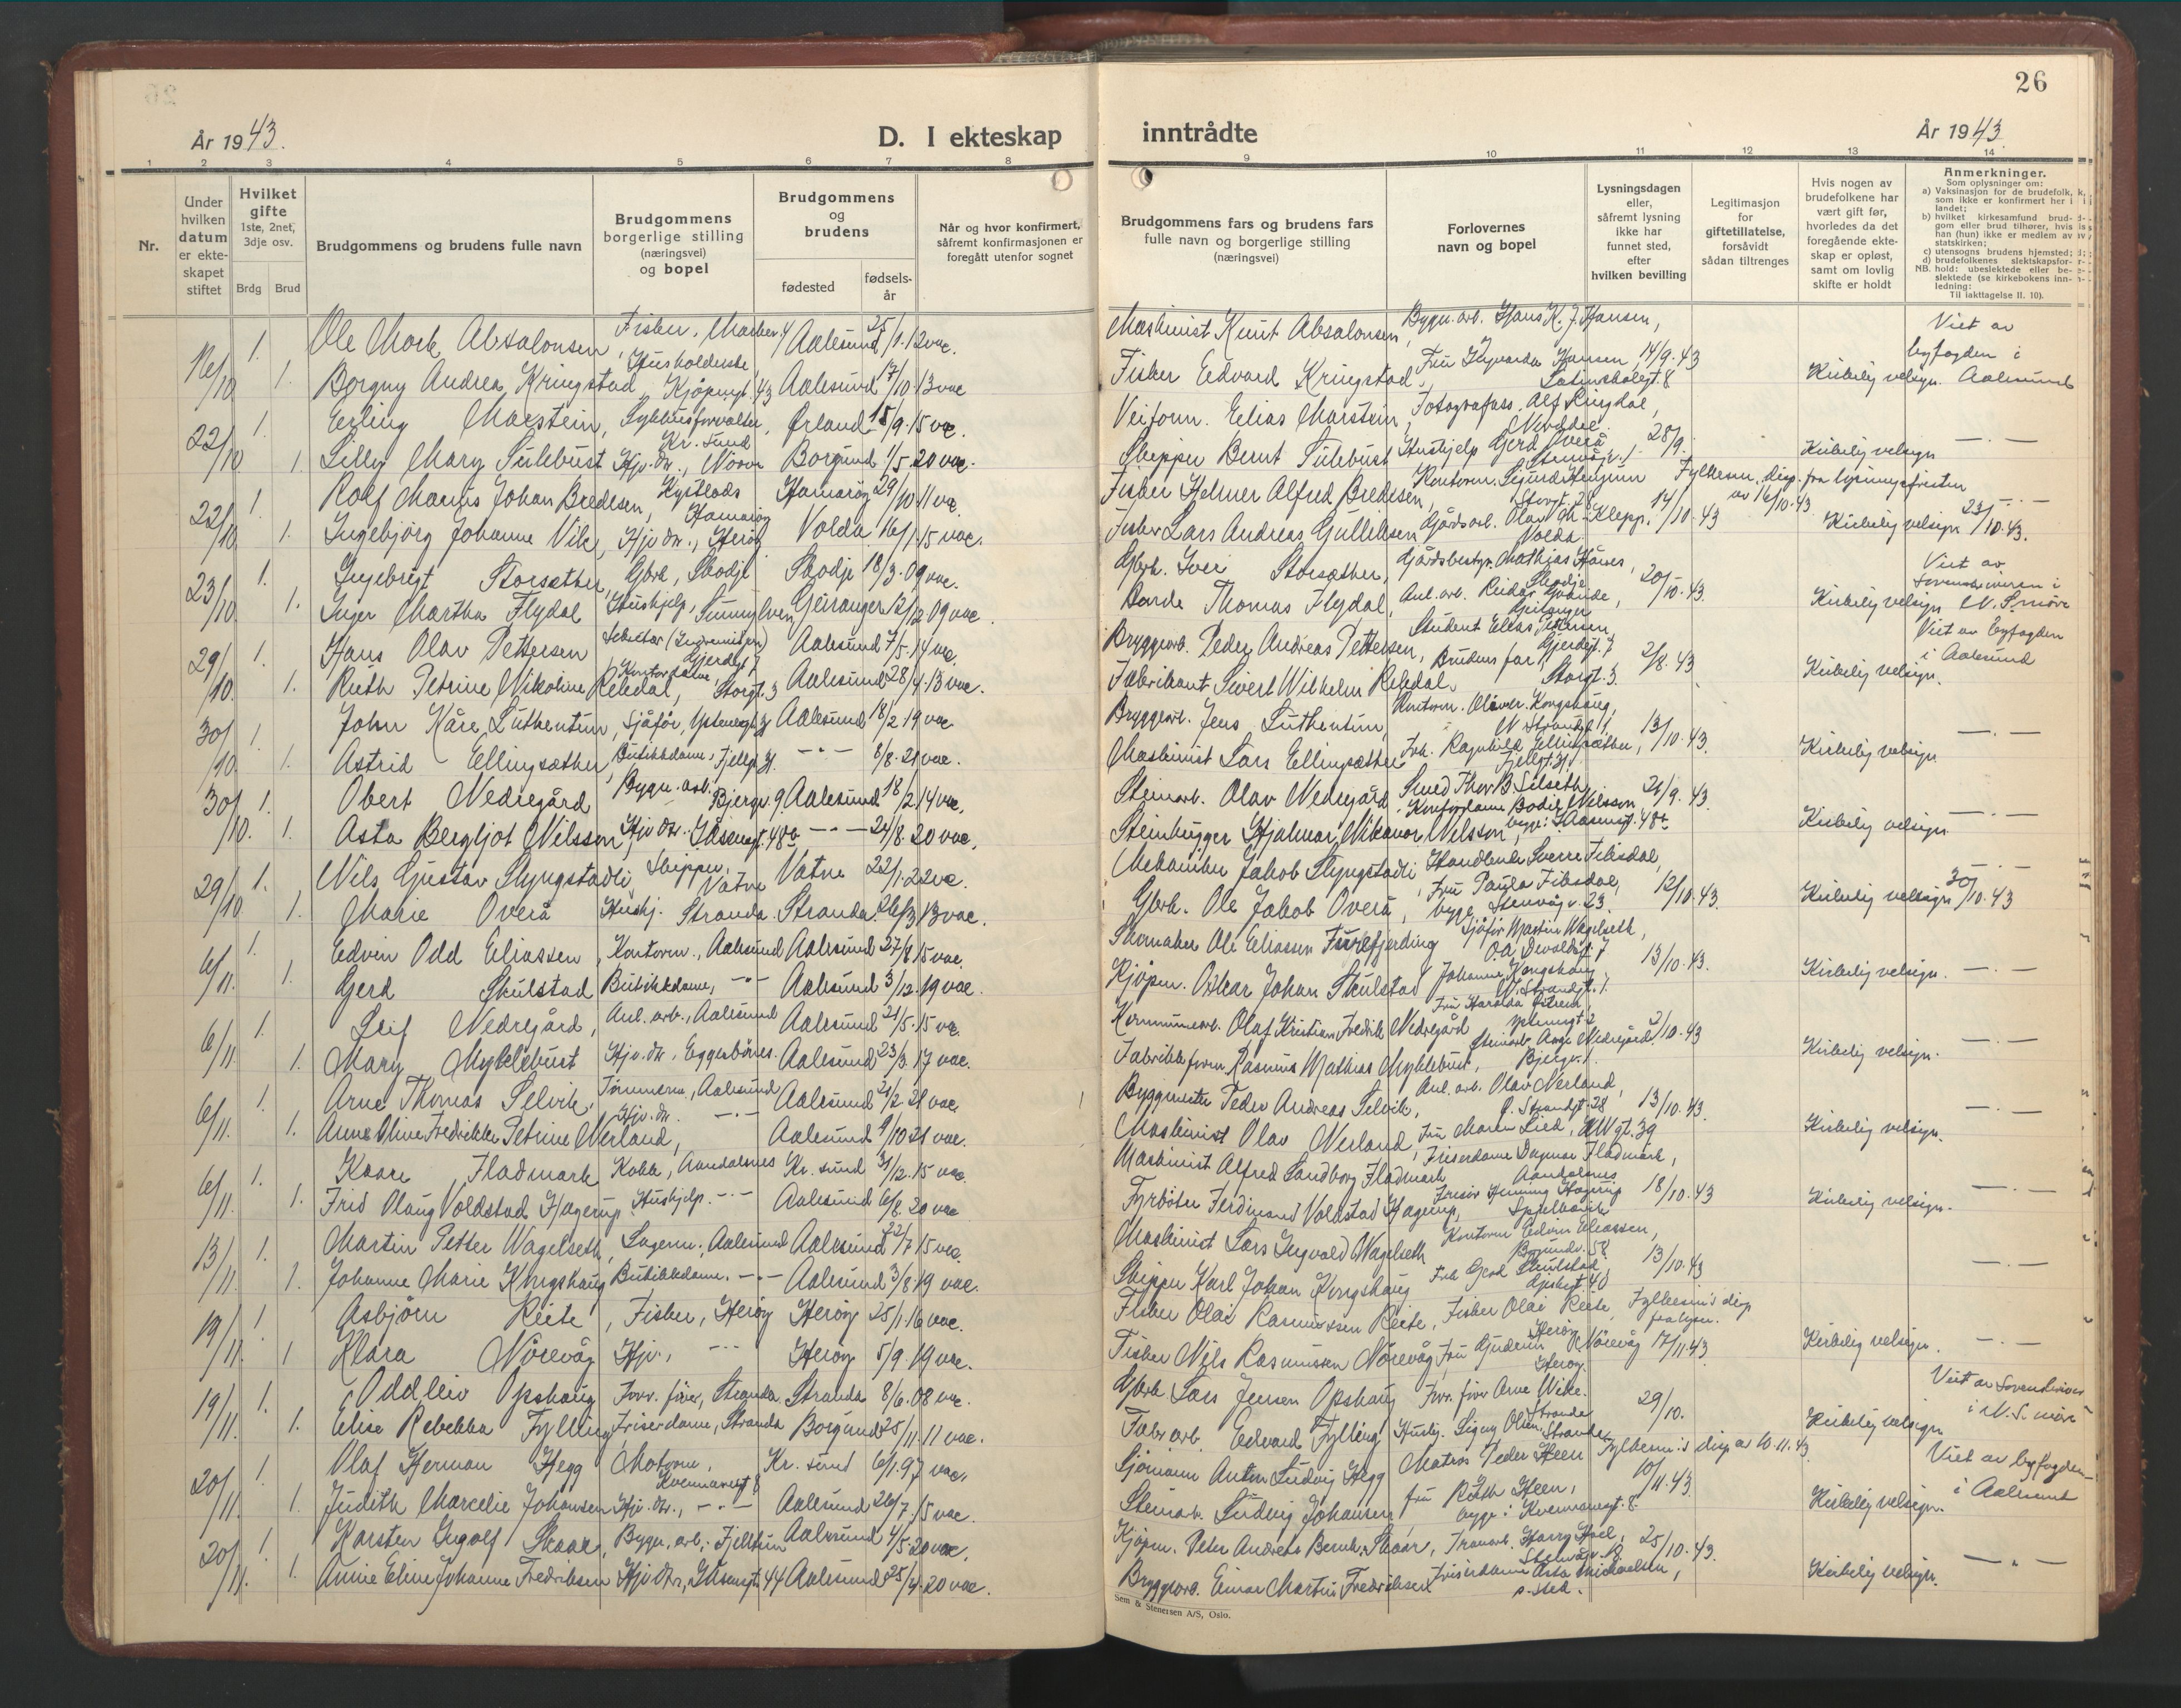 26
År 1943.
D. I ekteskap inntrådte
År 1943
1 2 3 4 5 6 7 8 9 10 11 12 13 14
Nr.
Under hvilken datum er ekteskapet stiftet
Hvilket gifte 1ste, 2net, 3dje osv.
Brdg Brud
Brudgommens og brudens fulle navn
Brudgommens borgerlige stilling (næringsvei) og bopel
Brudgommens og brudens
fødested
fødselsår
Når og hvor konfirmert, såfremt konfirmasjonen er foregått utenfor sognet
Brudgommens fars og brudens fars fulle navn og borgerlige stilling (næringsvei)
Forlovernes navn og bopel
Lysningsdagen eller, såfremt lysning ikke har funnet sted, efter hvilken bevilling
Legitimasjon for giftetillatelse, forsåvidt sådan tiltrenges
Hvis nogen av brudefolkene har vært gift før, hvorledes da det foregående ekteskap er opløst, samt om lovlig skifte er holdt
Anmerkninger.
Som oplysninger om:
a) Vaksinasjon for de brudefolk, som ikke er konfirmert her i landet;
b) hvilket kirkesamfund brudgom eller brud tilhører, hvis han (hun) ikke er medlem av statskirken;
c) utensogns brudens hjemsted;
d) brudefolkenes slektskapsforhold: ubeslektede eller beslektede (se kirkebokens innledning:
NB.
Til iakttagelse II. 10).
16/10 1. Ole Mork Absalonsen, Fisker, 4 Aalesund 25/1.12 vac. Maskinist Knut Absalonsen, Bygn. arb. Hans K. J. Hansen, Viet av byfogden i Aalesund
1. Borgny Andrea Kringstad, Husholderske Kjøpmgt. 43 Aalesund 17/10.13 vac Fisker Edvard Kringstad, Fru Ingvarda Hansen Latinskolegt. 8 14/9.43 Kirkelig velsign.
22/10 1. Erling Marstein, Sykehusforvalter, Kr. sund Ørland 15/9.15 vac. Veiform. Elias Marstein, Fotografass. Alf Ringdal,
1. Lilly Mary Sulebust Hjv. dtr., Nørve Borgund 1/5.20 vac. Skipper Bernt Sulebust Hushjelp Gerd Overå 28/9. Kirkelig velsign — . —
22/10 1. Rolf Marius Johan Bredesen, Hamarøy Hamarøy 29/10.11 vac. Fisker Helmer Alfred Bredesen, Kontorm. Sigurd Storgt. 28 Fylkesm. disp. fra lysningsfristen av 16/10.43 — . —
1. Ingebjörg Johanne Vik, Hjv. dtr., Herøy Volda 16/1.15 vac. Fisker Lars Andreas Gulliksen Gårdsarb. Olav Klepp, Volda 14/10.43 Kirkelig velsign 23/10.43.
23/10 1. Ingebrigt Storsæther, Gbrk, Skodje Skodje 18/3.09 vac. Gbrk. Iver Storsæther, Gårdsbestyr. Mathias Skodje Viet av Sorenskriveren i N. S.møre
1. Inger Martha Flydal Hushjelp, Sunnylven Geiranger 12/12.09 vac. Thomas Flydal, Anl. arb. Reidar Geiranger 20/10.43. Kirkelig velsign
29/10 1. Hans Olav Pettersen Gjerdegt 7 Aalesund 7/5.14 vac. Bryggearb. Peder Andreas Pettersen, Student Elias Pettersen Gjerdegt. 7 Viet av byfogden i Aalesund
1. Ruth Petrine Nikoline Rekdal, Kontordame, Storgt. 3 Aalesund 28/4.13 vac. Fabrikant Sivert Wilhelm Rekdal. Brudens far Storgt. 3. 2/8.43 Kirkelig velsign.
30/10 1. John Kåre Luthentun, Sjåfør, Aalesund 18/2.19 vac Bryggearb. Jens Luthentun, Kontorm. Oliver Kongshaug,
1. Astrid Ellingsæther, Butikkdame, Fjellgt 31. — " — 8/8.21 vac. Maskinist Lars Ellingsæther Frk. Ragnhild Ellingsæther, Fjellgt 31. 13/10.43. Kirkelig velsign — . —
30/10. 1. Obert Nedregård Bygn. arb. Bjergv. 9. Aalesund 18/2.14 vac. Steinarb. Olav Nedregård Smed Thor B. Silseth,
1. Asta Bergljot Nilssen, Hjv. dtr. — " — 24/8.20 vac. Steinhugger Hjalmar Nikanor Nilsen, Kontordame Bodil Nilssen 21/9.43. Kirkelig velsign — . —
29/10 1. Nils Gustav Slyngstadli, Skipper, Vatne Vatne 22/1.22 vac. Mekaniker Jakob Slyngstadli Handlende Sverre Fiksdal,
1. Marie Overå Hushj. Stranda. Stranda 26/3.13 vac. Gbrk. Ole Jakob Overå, Fru Paula Fiksdal, begge Stenvågv. 23. 12/10.43. Kirkelig velsign 30/10.43
6/11. 1. Edvin Odd Eliassen, Kontorm., Aalesund Aalesund 27/8.15 vac. Skomaker Ole Eliassen Furefjerding Sjåfør Martin Wagelseth, O. A. Devoldsgt. 7
1. Gerd Skulstad Butikkdame, — " — Aalesund 3/12.19 vac. Kjøpm. Oskar Johan Skulstad Johanne Kongshaug 13/10.43. Kirkelig velsign. — . —
6/11. 1. Leif Nedregård, Anl. arb., Aalesund Aalesund 21/5.15 vac. Kommunearb. Olaf Kristian Fredrik Nedregård Fru Haralda
1. Mary Myklebust Hjv. dtr., Eggesbönes. Aalesund 23/3.17 vac. Fabrikkform. Rasmus Mathias Myklebust, Steinarb. Aage Nedregård Bjergv. 1. 2/10.43 Kirkelig velsign. — . —
6/11. 1. Arne Thomas Selvik, Tømmerm., Aalesund Aalesund 21/2.21 vac. Byggmester Peder Andreas Selvik, Anl. arb. Olav Nerland, 13/10.43.
1. Anna Oline Fredrikke Petrine Nerland, Hjv. dtr. — " — Aalesund 9/10.21 vac. Maskinist Olav Nerland, Fru Maren Lied, Kirkelig velsign. — . —
6/11. 1. Kaare Fladmark Kokk, Aandalsnes Kr. sund 31/12.15 vac. Maskinist Alfred Sandborg Fladmark Friserdame Dagmar Fladmark, Aandalsnes
1. Frid Olaug Voldstad Hagerup Hushjelp. — " — Aalesund 6/8.20 vac Fyrbøter Ferdinand Voldstad Hagerup, Frisør Henning Hagerup Spjelkavik 18/10.43 Kirkelig velsign. — . —
13/11. 1. Martin Petter Wagelseth, Lagerm., Aalesund Aalesund 22/7.15 vac. Maskinist Lars Ingvald Wagelseth Kontorm Edvin Eliassen, 13/10.43
1. Johanne Marie Kongshaug Butikkdame. — " — Aalesund 3/8.19 vac. Skipper Karl Johan Kongshaug Frk Gerd Skulstad, — . —
19/11. 1. Asbjørn Reite, Fisker, Herøy Herøy 25/1.16 vac. Fisker Olai Rasmussen Reite, Fisker Olai Reite, Herøy Fylkesm's disp fra lysn.
1 Klara Nörevåg Hjv., — " — Herøy 5/9.19 vac. Fisker Nils Rasmussen Nörevåg, Fru Gudrun Nörevåg Herøy. 17/11.43 Kirkelig velsign. — . —
19/11. 1. Oddleiv Opshaug Forr. fører, Stranda Stranda 8/6.08 vac. Gbrk Lars Jensen Opshaug Forr. fører Arne Wike. Stranda 29/10. Viet av Sorenskriver i N. S. møre
1. Elise Rebekka Fylling, Friserdame, Stranda Borgund 25/11.11 vac. Fabr arb. Edvard Fylling Hushj. Signy Olsen, Stranda Kirkelig velsign
20/11. 1. Olaf Herman Hegg Motorm., Kr. sund 6/1.97 vac. Sjömann Anton Ludvig Hegg Matros Peder Heen Fylkesm:s disp av 10.11.43. Viet av byfogden i Aalesund
1. Judith Marcelie Johansen Hjv. dtr., — " — Aalesund 26/7.15 vac. Steinarb. Ludvig Johansen, fru Ruth Heen, begge: Kvennanesgt. 8. 10/11.43. Kirkelig velsign.
20/11. 1. Karsten Ingolf Skaar, Bygn. arb., Fjelltun Aalesund 4/5.20 vac. Kjøpm. Peter Andreas Bernh. Skaar, Tranarb. Harry Hoel, 25/10.43.
1. Annie Eline Johanne Fredriksen Hjv. dtr., 44 Aalesund 25/4.20 vac. Bryggearb. Einar Martin Fredriksen Friserdame Asta Michaelsen, s. sted. Kirkelig velsign. — " —
Sem & Stenersen A/S, Oslo.